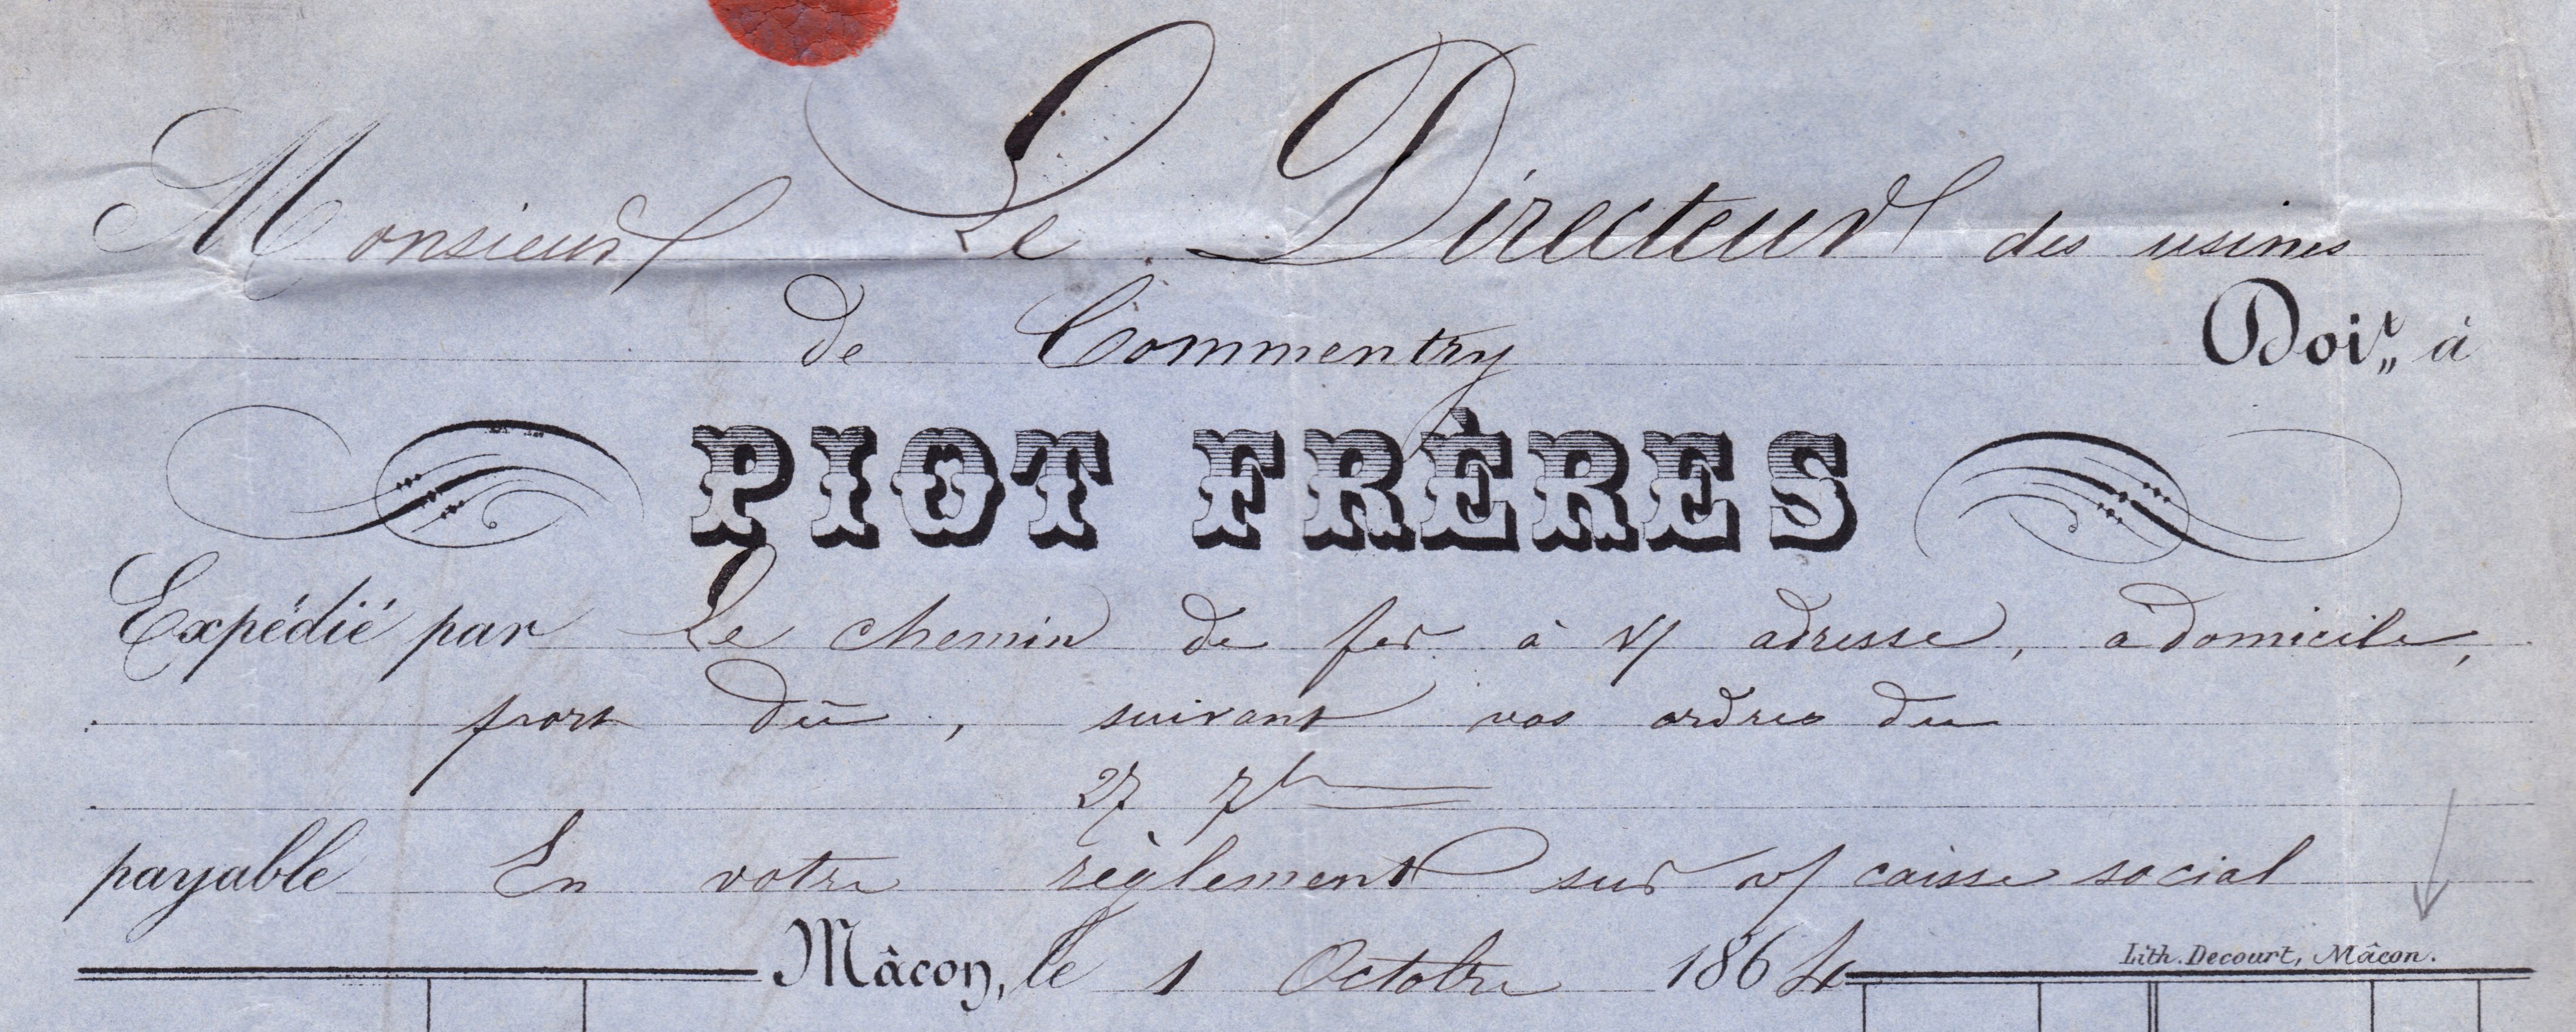 Monsieur Le Directeur des usines
de Commentry Doit à
PIOT FRÈRES
Expédié par Le chemin de fer à v/ adresse, à domicile,
port dû, suivant vos ordres du
27 7b
payable En votre règlement sur v/ caisse social
Mâcon, le 1 Octobre 1864
Lith. Decourt, Mâcon.